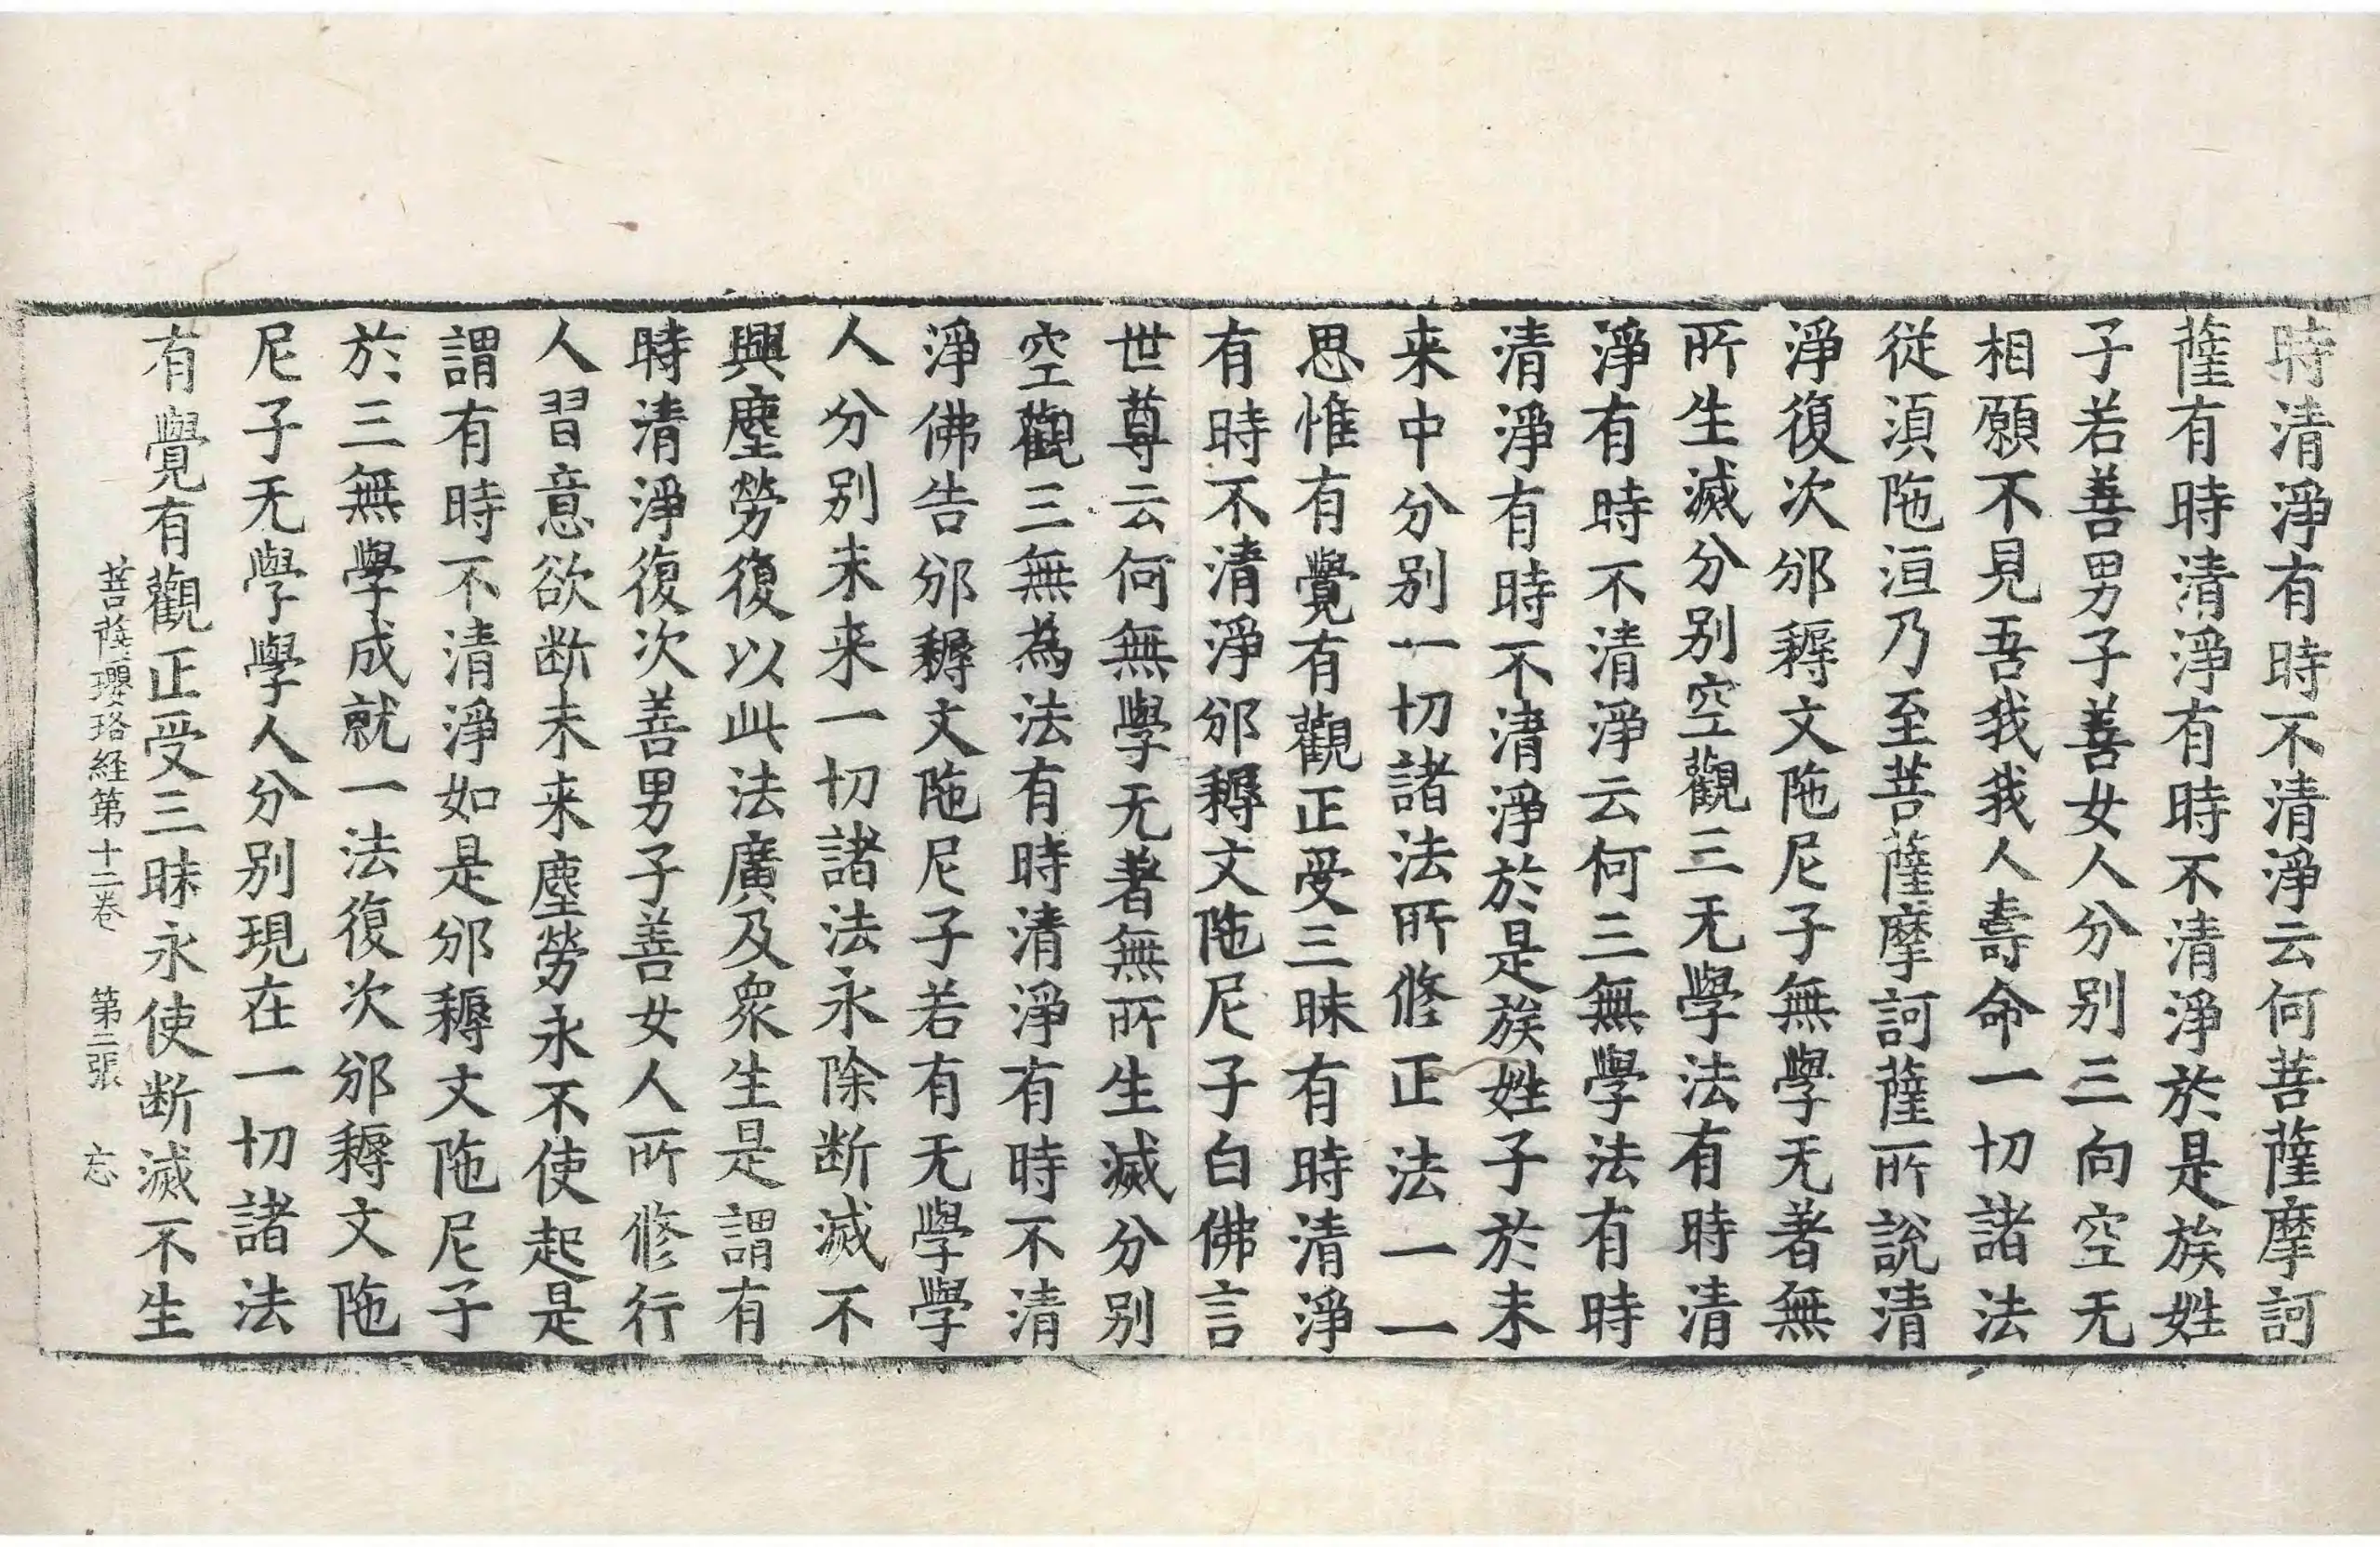 時清淨有時不清淨云何菩薩摩訶
薩有時清淨有時不清淨於是族姓
子若善男子善女人分別三向空无
相願不見吾我我人壽命一切諸法
從湏陁洹乃至菩薩摩訶薩所說清
淨復次邠耨文陁尼子無學无著無
所生滅分別空觀三无學法有時清
淨有時不清淨云何三無學法有時
清淨有時不清淨於是族姓子於未
来中分別一切諸法所修正法一一
思惟有覺有觀正受三昧有時清淨
有時不清淨邠耨文陁尼子白佛言
世尊云何無學无著無所生滅分別
空觀三無為法有時清淨有時不清
淨佛告邠耨文陁尼子若有无學學
人分別未来一切諸法永除断滅不
興塵勞復以此法廣及衆生是謂有
時清淨復次善男子善女人所修行
人習意欲断未来塵勞永不使起是
謂有時不清淨如是邠耨文陁尼子
於三無學成就一法復次邠耨文陁
尼子无學學人分別現在一切諸法
有覺有觀正受三昧永使断滅不生
菩薩瓔珞経第十二卷 第三張 忘